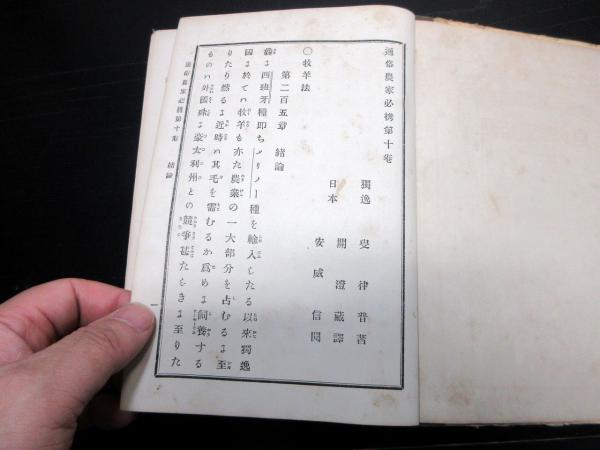 通俗農家必携第十卷
獨逸 叟律普著
日本 關澄藏譯
安威信閲
〇牧羊法
第二百五章 緒論
曩よ西班牙種即ちメリノー種を輸入したる以來獨逸
國よ於てハ牧羊も亦た農業の一大部分を占むるよ至
りたり然るよ近時ハ其毛を需むるか爲めよ飼養する
ものハ外國殊よ豪太利州との競爭甚たしきよ至りた
通俗農家必携第十卷 緒論
一